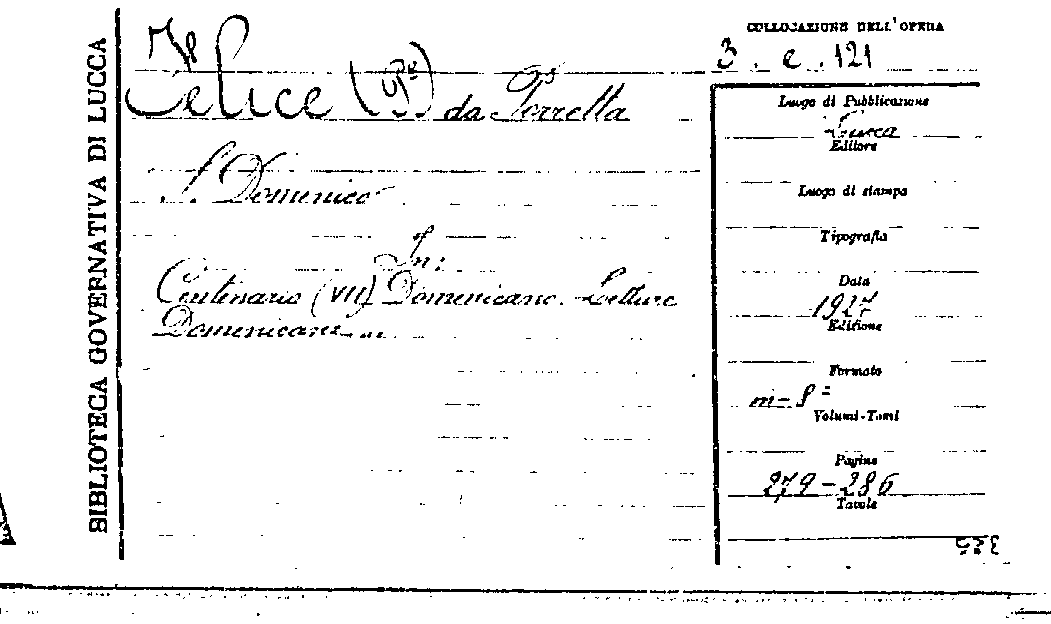 BIBLIOTECA GOVERNATIVA DI LUCCA
COLLOCAZIONE DELL'OPERA
3. e. 121
Felice (Pre) da Porretta
S. Domenico
In:
Centenario (VII) Domenicano. Letture
Domenicane ...
Luogo di Pubblicazione
Lucca
Editore
Luogo di stampa
Tipografia
Data
1927
Edizione
Formato
in-8°
Volumi-Tomi
Pagine
279-286
Tavole